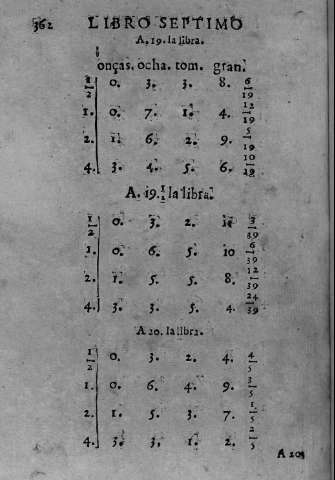 362 LIBRO SEPTIMO
A. 19. la libra.
onças. ocha. tom. gran.
1/2 0. 3. 3. 8. 6/19
1. 0. 7. 1. 4. 12/19
2. 1. 6. 2. 9. 5/19
4. 3. 4. 5. 6. 10/19
A. 19. 1/2 la libra.
1/2 0. 3. 2. 11 3/39
1. 0. 6. 5. 10 6/39
2. 1. 5. 5. 8. 12/39
4. 3. 3. 5. 4. 24/39
A 20. la libra.
1/2 0. 3. 2. 4. 4/5
1. 0. 6. 4. 9. 3/5
2. 1. 5. 3. 7. 1/5
4. 3. 3. 1. 2. 2/5
A